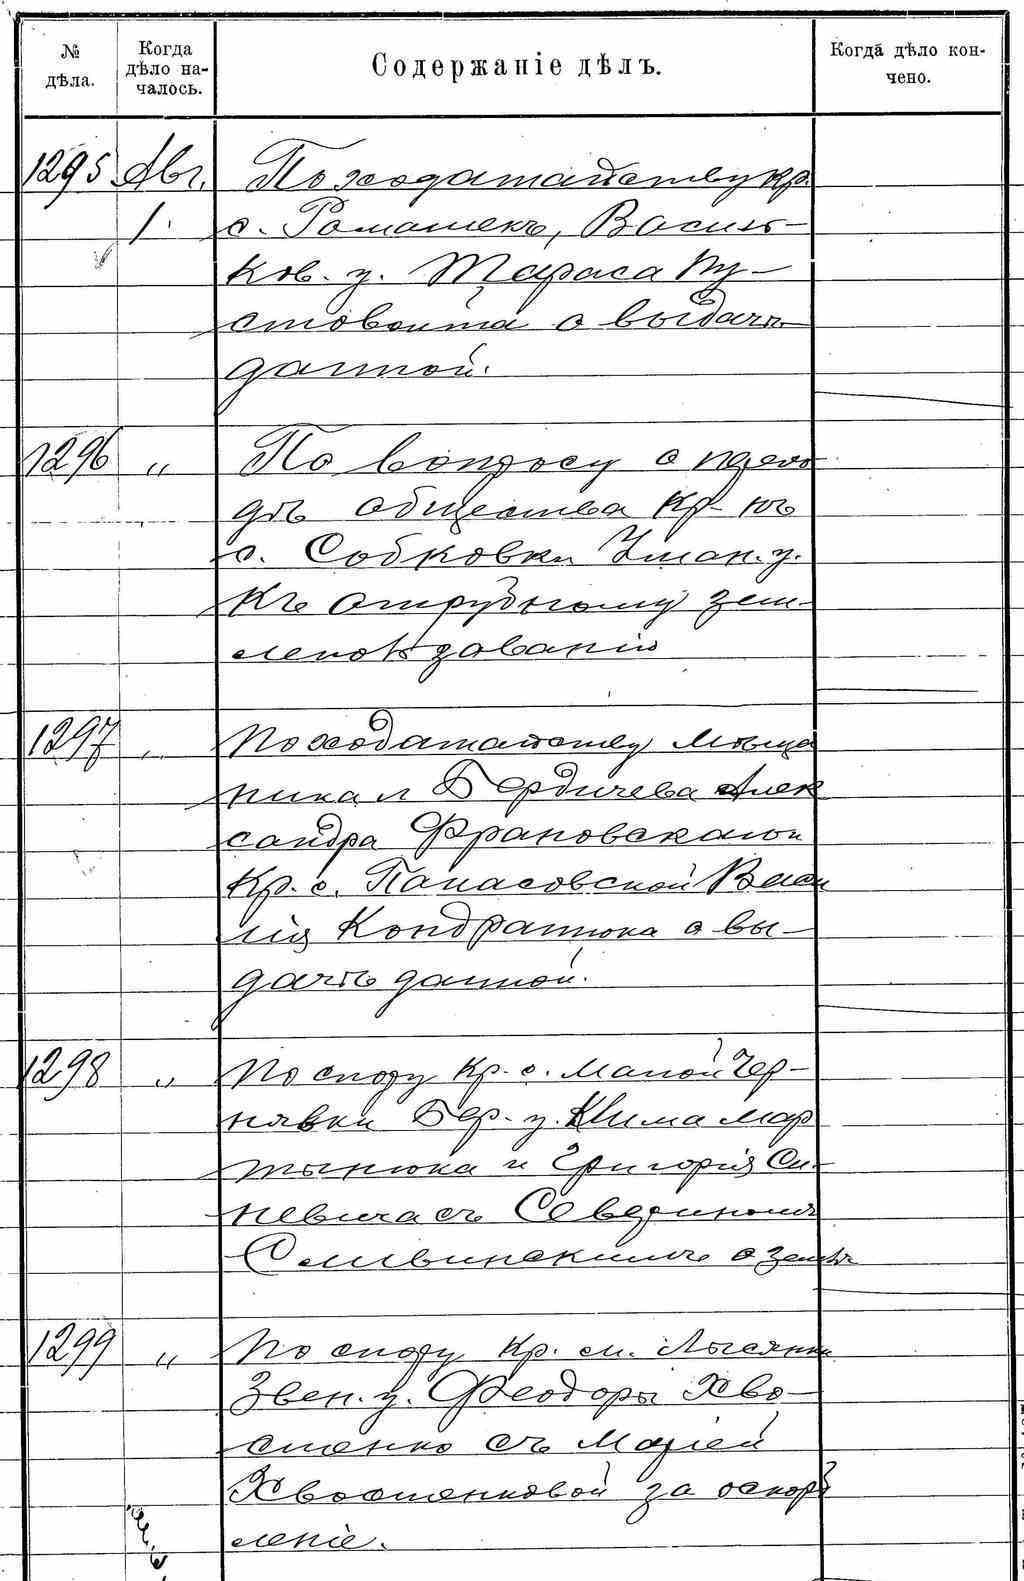 № дѣла. Когда дѣло началось. Содержаніе дѣлъ. Когда дѣло кончено.
1295 Авг. По ходатайству кр.
1. с. Ромашекъ, Василь-
ков. у. Тараса Пу-
стовойта о выдачѣ
данной.
1296 „ По вопросу о перехо
дѣ общества кр-нъ
с. Собковки Уман. у.
къ отрубному зем-
лепользованію
1297 „ По ходатайству мѣща
нина м Бердичева Алек
сандра Франовскаго и
кр. с. Панасовской Васи
лія Кондратюка о вы-
дачѣ данной.
1298 „ По спору кр. с. Малой Чер-
нявки Бер. у. Клима Мар
тынюка и Григорія Си-
невича съ Севериномъ
Сливинскимъ о землѣ
1299 „ По спору кр. м. Лысянки
Звен. у. Феодоры Хво-
стенко съ Маріей
Хвостенковой за оскорб
леніе.